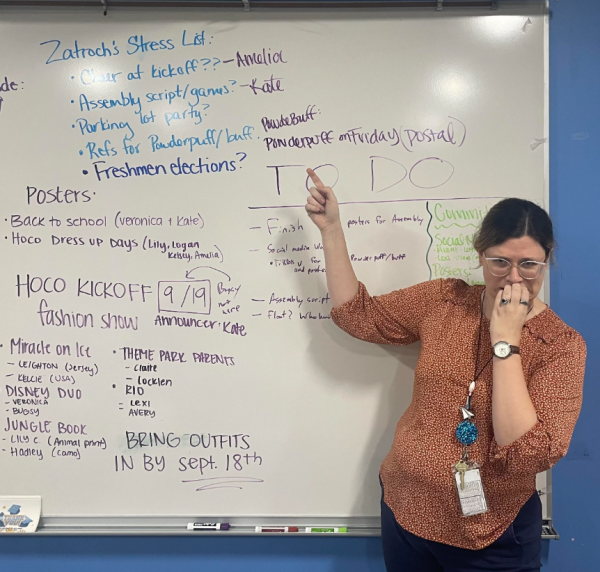 Zatroch's Stress List:
• Cheer at kickoff?? - Amelia
• Assembly script/games? - Kate
• Parking lot party?
• Refs for Powderpuff/buff
• Freshmen elections?
PowdeBuff:
• Powderpuff on Friday (postal)
TO DO
Posters•
• Back to school (veronica + Kate)
• Hoco Dress up Days (Lily, Logan
Kelsey, Amelia)
HOCO KICKOFF 9/19
Bugsy
not
here
fashion show
Announcer: Kate
• Miracle on Ice
- LEIGHTON (Jersey)
- KELCIE (USA)
DISNEY DUO
- VERONICA
- BUGSY
JUNGLE BOOK
- LILY C (Animal print)
- Hadley (camo)
• THEME PARK PARENTS
- Claire
- Locklen
• RIO
- LEXI
- AVERY
BRING OUTFITS
IN BY Sept. 18th
- Finish posters for Assembly
- Social media
for Powder puff/buff
- Assembly script
- Float?
Social
Posters: